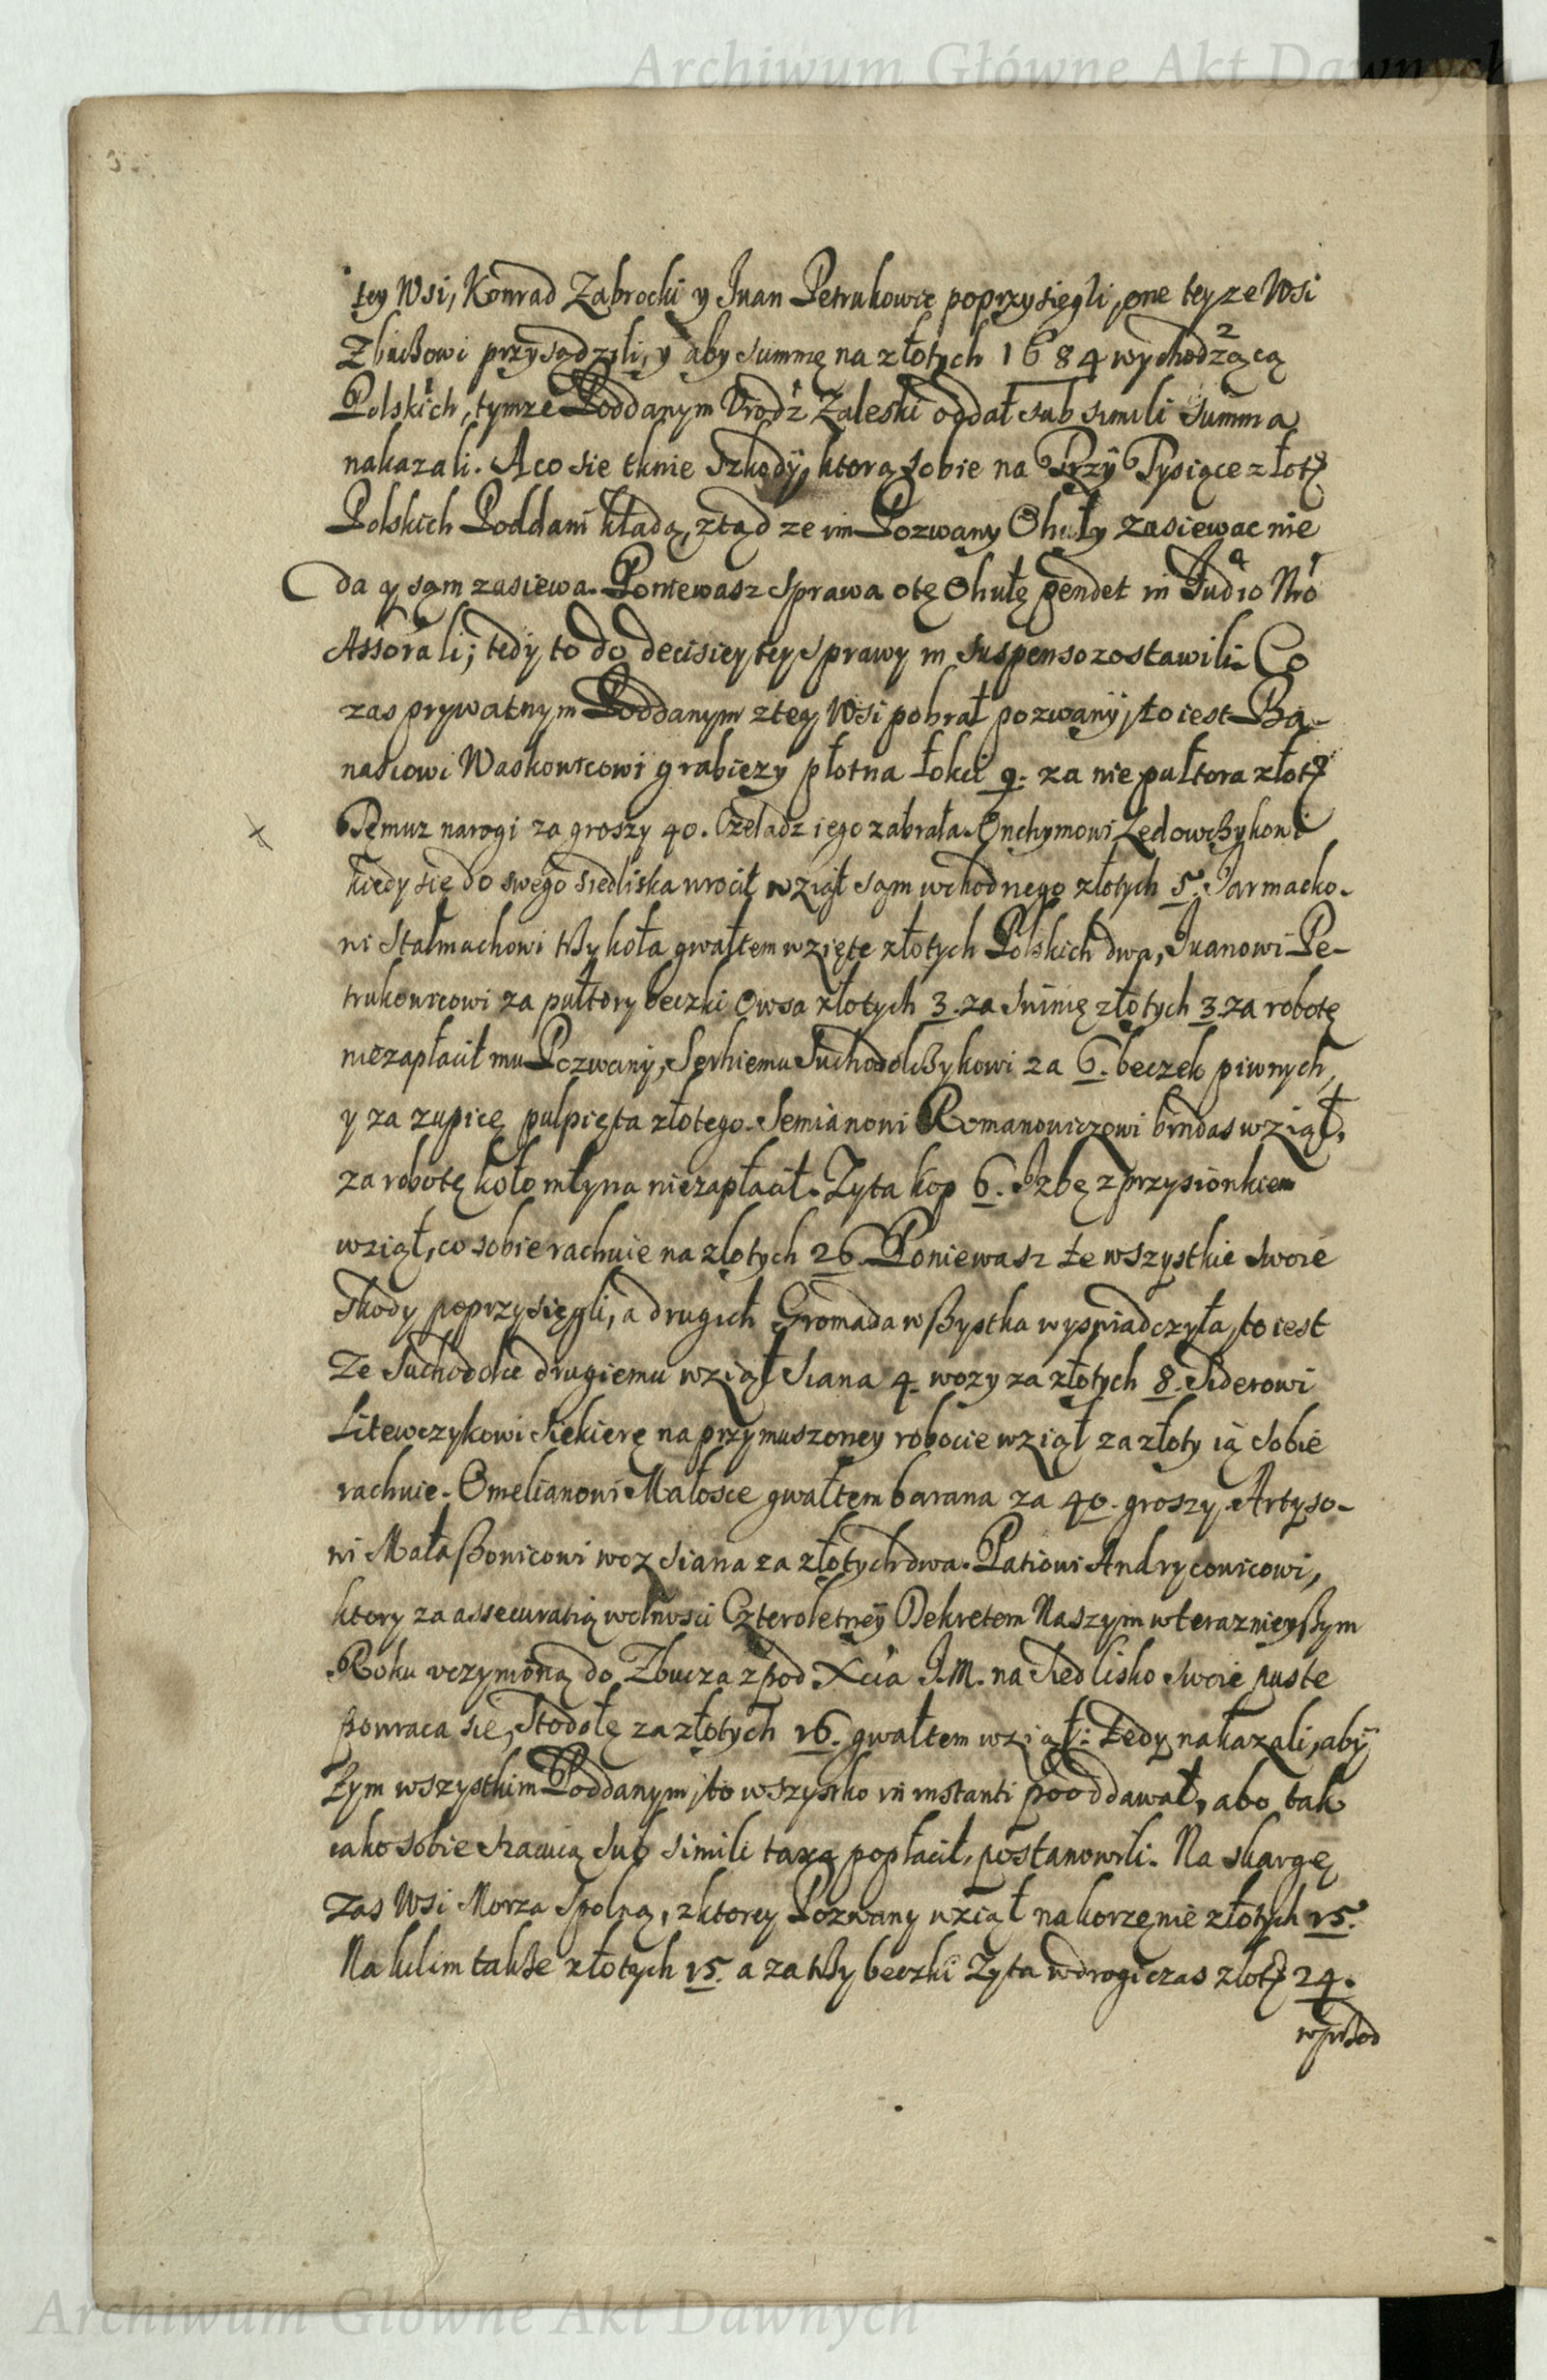 Archiwum Główne Akt Dawnych
tey Wsi, Konrad Zabrocki y Iwan Petrukowic poprzysięgli, one teyze Wsi
Zbuckowi przysądzili, y aby summę na złotych 1684 wychodzącą
Polskich, tymze Poddanym Urodz Zaleski oddał sub simili summa
nakazali. A co sie tknie Szkody, ktorą sobie na Trzy Tysiące złot
Polskich Poddani kładą, ztąd ze im Pozwany Chuły zasiewac nie
da y sam zasiewa. Poniewasz Sprawa o tę Chułę pendet in Judio Nro
Assorali; tedy to do decisiey tey Sprawy in suspenso zostawili. Co
zas prywatnym Poddanym z tey Wsi pobrał pozwany, to iest Ba-
nasiowi Waskowicowi grabiezy płotna łokci 9. za nie pułtora złot
Temuz narogi za groszy 40. Czeladz iego zabrała. Onchymowi Ledowczykowi
kiedy się do swego siedliska wrocił wziął sam wchodnego złotych 5. Jarmacko-
wi Stalmachowi trzy koła gwałtem wzięte złotych Polskich dwa, Iwanowi Pe-
trukowicowi za pułtory beczki Owsa złotych 3. za Swinię złotych 3. za robotę
niezapłacił mu Pozwany, Serhiemu Suchodolczykowi za 6. beczek piwnych,
y za zupicę pułpięta złotego. Semianowi Romanowiczowi bindas wziął,
za robotę koło młyna niezapłacił. Zyta kop 6. Izbę z przysionkiem
wziął, co sobie rachuie na złotych 26. Poniewasz te wszystkie swoie
Skody poprzysięgli, a drugich Gromada wszystka wyswiadczyła, to iest
Ze Suchodolce drugiemu wziął Siana 4. wozy za złotych 8. Siderowi
Litewczykowi Siekierę na przymuszoney robocie wziął za złoty ią sobie
rachuie. Omelianowi Małosce gwałtem barana za 40. groszy. Artyso-
wi Małaszowicowi woz Siana za złotych dwa. Patiowi Andrycowicowi,
ktory za assecuratią wolnosci Czteroletney Dekretem Naszym w teraznieyszym
Roku uczynioną do Zbucza z pod Xcia J.M. na Siedlisko swoie puste
powraca sie, Stodołę za złotych 16. gwałtem wziął: tedy nakazali, aby
tym wszystkim Poddanym, to wszystko in instanti pooddawał, abo tak
iako sobie szacuią sub simili taxą popłacił, postanowili. Na skargę
zas Wsi Morza Spolną, z ktorey Pozwany wziął na korzęnie złotych 15.
Na kilim takze złotych 15. a za trzy beczki Zyta w drogi czas złot 24.
wprzod
Archiwum Główne Akt Dawnych